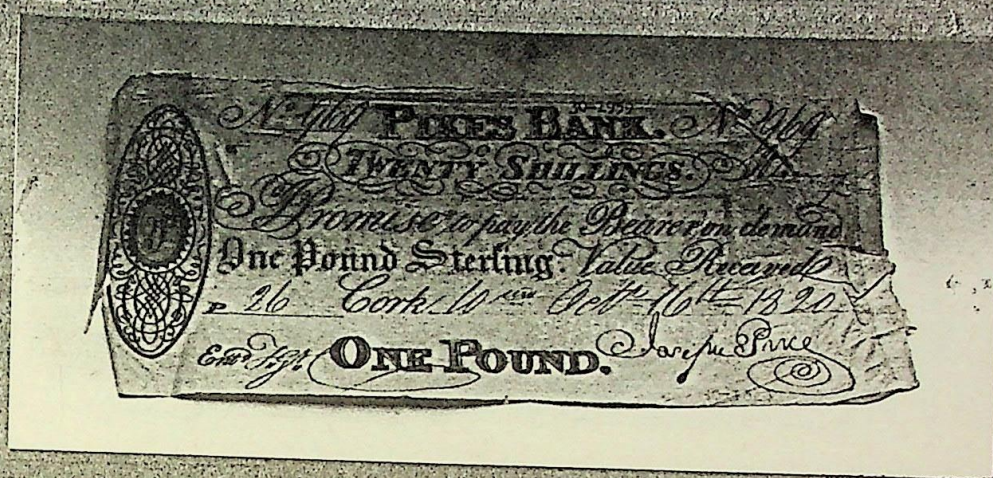 No 9169 PIKES BANK. No 9169
30-1959
TWENTY SHILLINGS.
I Promise to pay the Bearer on demand
One Pound Sterling. Value Received
P 26 Cork 10 Octr 16th 1820
Entd ONE POUND. Joseph Pike